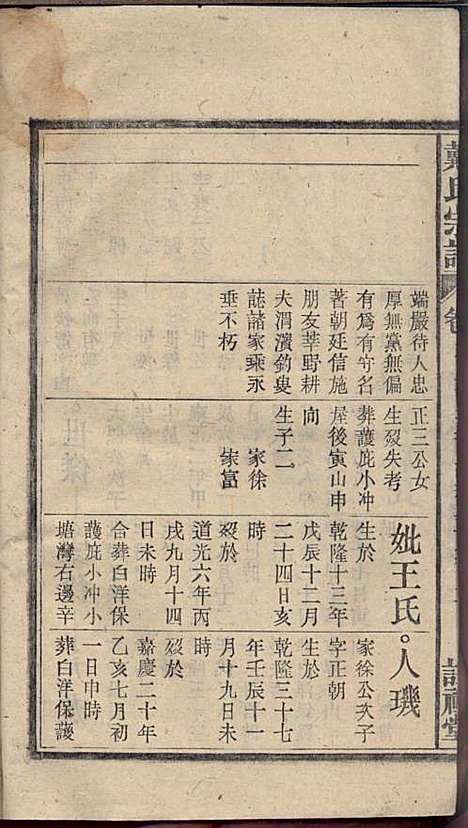 戴氏宗譜 卷
詩禮堂
端嚴待人忠
厚無黨無偏
有為有守名
著朝廷信施
朋友莘野耕
夫渭濱釣叟
誌諸家乘永
垂不朽
正三公女
生歿失考
葬護庇小冲
屋後寅山申
向
生子二
家徐
家富
妣王氏
生於
乾隆十三年
戊辰十二月
二十四日亥
時
歿於
道光六年丙
戌九月十四
日未時
合葬白洋保
護庇小冲小
塘灣右邊辛
人璣
家徐公次子
字正朝
生於
乾隆三十七
年壬辰十一
月十九日未
時
歿於
嘉慶二十年
乙亥七月初
一日申時
葬白洋保護